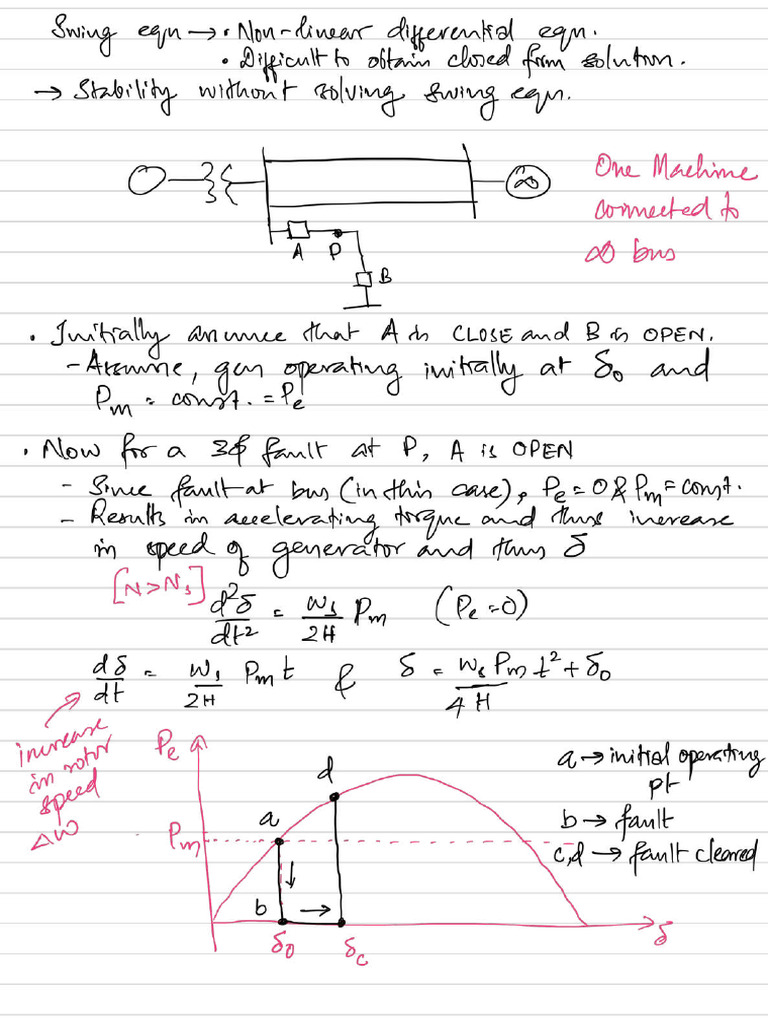 Swing eqn → • Non-linear differential eqn.
• Difficult to obtain closed form solution.
→ Stability without solving swing eqn.
∞
One Machine
connected to
∞ bus
A P
B
• Initially assume that A is CLOSE and B is OPEN.
- Assume, gen operating initially at δ₀ and
Pm = const. = Pe
• Now for a 3ϕ fault at P, A is OPEN
- Since fault at bus (in this case), Pe = 0 & Pm = const.
- Results in accelerating torque and thus increase
in speed of generator and thus δ
[N > Ns]
d²δ/dt² = ωs/2H Pm (Pe = 0)
dδ/dt = ωs/2H Pm t & δ = ωs Pm t²/4H + δ₀
increase
in rotor
speed
Δω
Pe
Pm
a
d
b
δ₀
δc
δ
a → initial operating
pt
b → fault
c,d → fault cleared